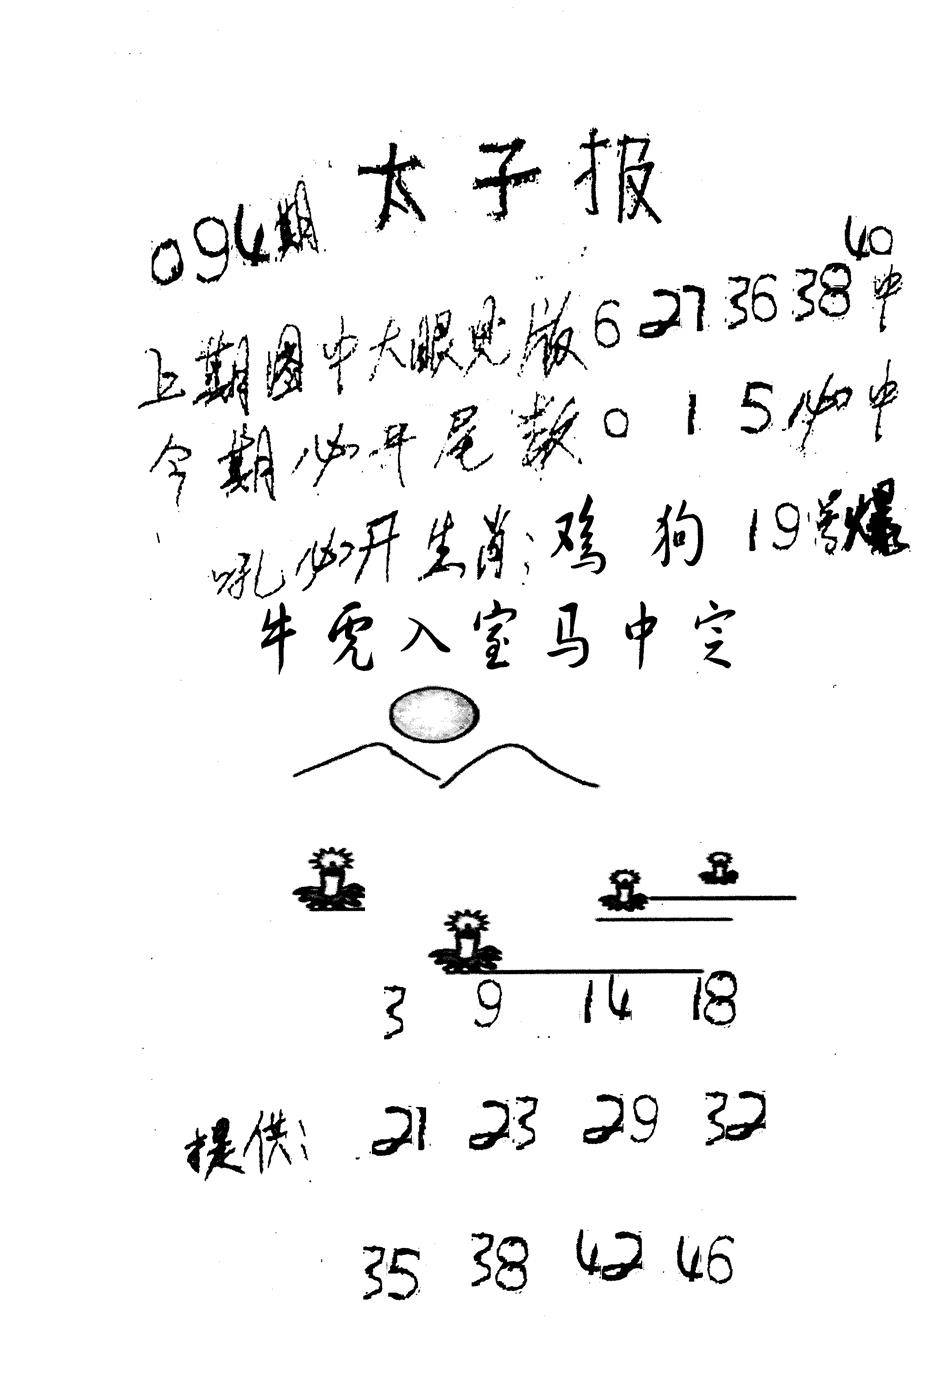 太子报
094期
40
上期图中大眼见版6 27 36 38中
今期必开尾数0 1 5必中
吼必开生肖:鸡 狗 19号爆
牛虎入宝马中定
3 9 14 18
提供: 21 23 29 32
35 38 42 46